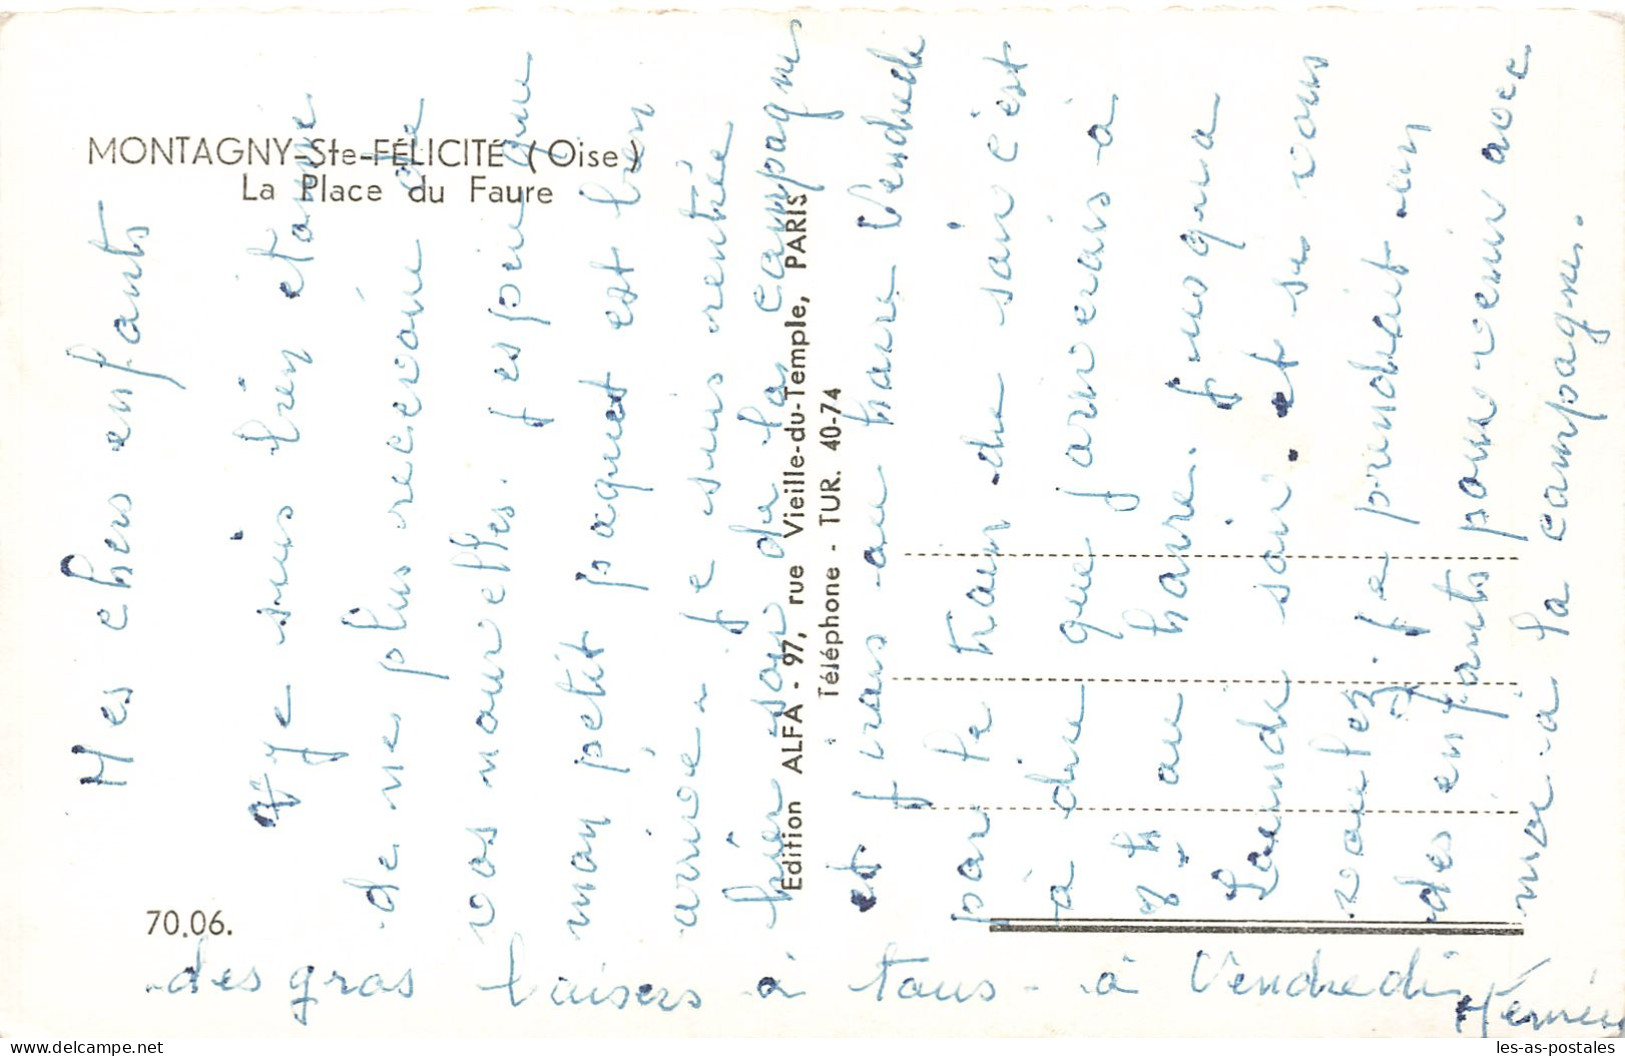 MONTAGNY-Ste-FÉLICITÉ (Oise)
La Place du Faure
Mes chers enfants
je suis bien étonné
de ne plus recevoir de
vos nouvelles. j espére que
mon petit paquet est bien
arrivé. je suis rentrée
hier soir de la campagne
et j irais au havre Vendredi
par le train de soir c'est
à dire que j'arriverais à
7h au havre. jusqua
Lundi soir. et si vous
voulez. je prendrait un
des enfants pour venir avec
moi à la campagne.
des gros baisers à tous - à Vendredi
Edition ALFA - 97, rue Vieille-du-Temple, PARIS
Téléphone - TUR. 40-74
70.06.
les-as-postales.com